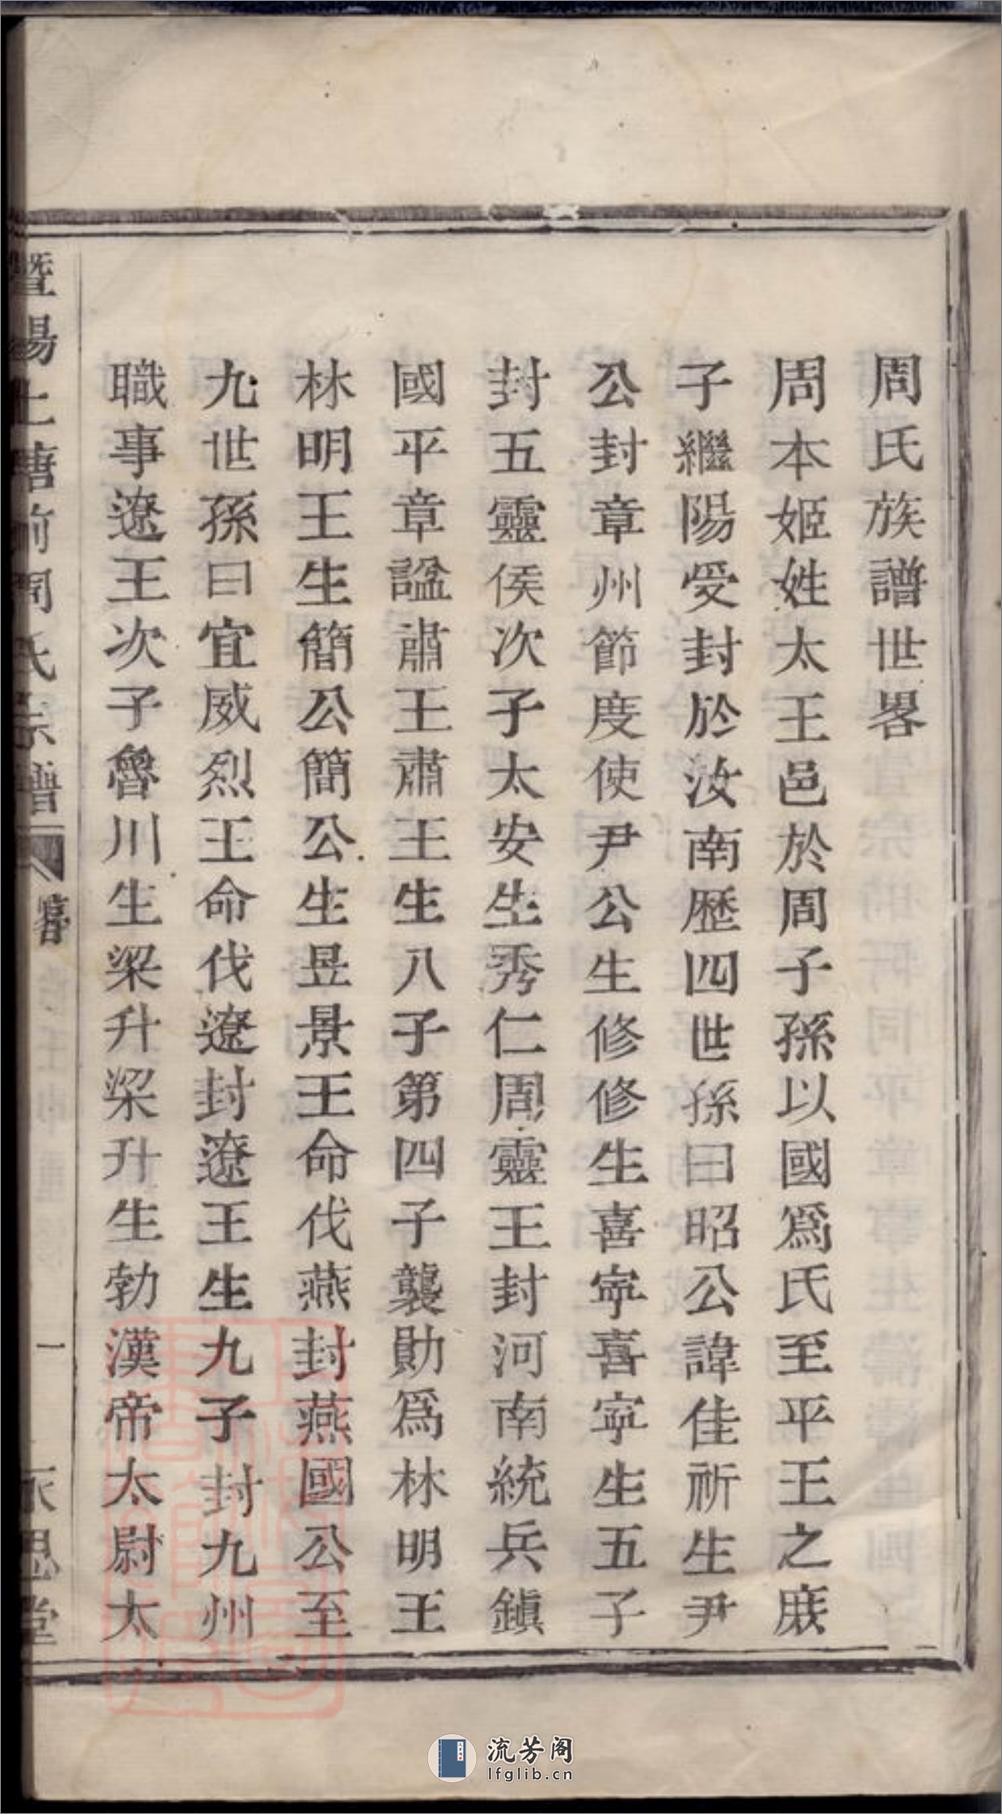 周氏族譜世畧
周本姬姓太王邑於周子孫以國爲氏至平王之庶
子繼陽受封於汝南歷四世孫曰昭公諱佳祈生尹
公封章州節度使尹公生修修生喜寕喜寕生五子
封五靈侯次子太安生秀仁周靈王封河南統兵鎭
國平章諡肅王肅王生八子第四子襲勛爲林明王
林明王生簡公簡公生昱景王命伐燕封燕國公至
九世孫曰宜威烈王命伐遼封遼王生九子封九州
職事遼王次子魯川生梁升梁升生勃漢帝太尉太
暨陽上塘前周氏宗譜
一
永思堂
流芳阁
lfglib.cn